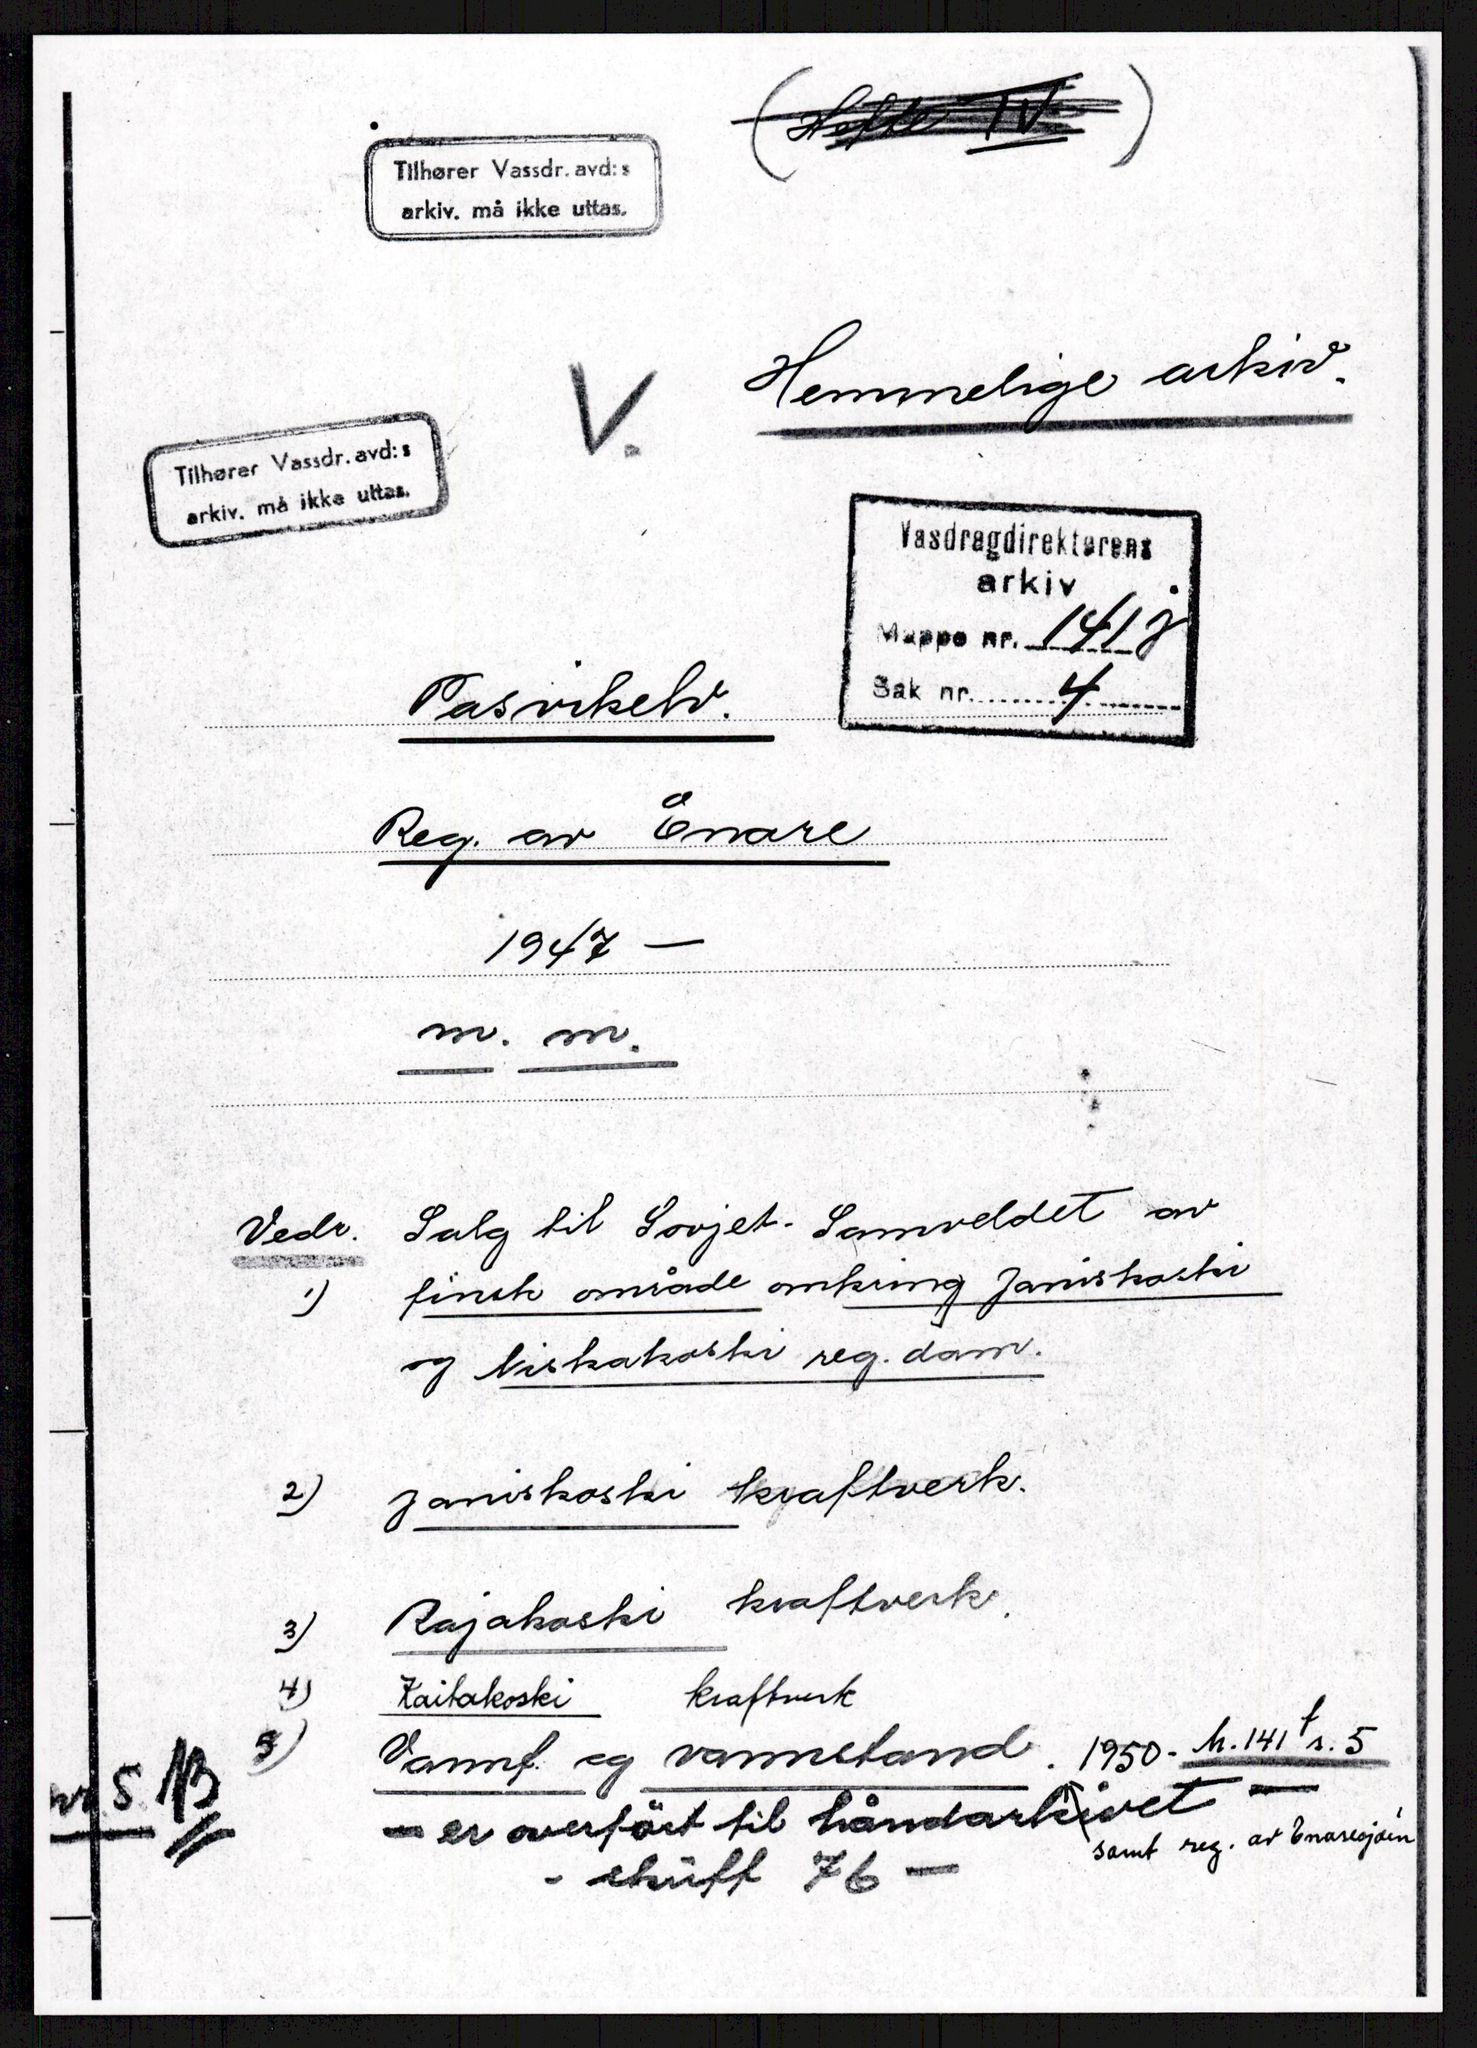 (Hefte IV)
Tilhører Vassdr. avd:s
arkiv. må ikke uttas.
Hemmelige arkiv.
V.
Tilhører Vassdr. avd:s
arkiv. må ikke uttas.
Vasdragdirektørens
arkiv
Mappe nr. 141 j
Sak nr. 4
Pasvikelv.
Reg. av Enare
1947 —
m. m.
Vedr. Salg til Sovjet-Samveldet av
1) finsk område omkring Janiskoski
og Niskakoski reg. dam.
2) Janiskoski kraftverk.
3) Rajakoski kraftverk.
4) Kaitakoski kraftverk
5) Vannf. og vannstand. 1950 - M. 141 f s. 5
5 B
— er overfört til håndarkivet —
samt reg. av Enaresjöen
- skuff 76 —